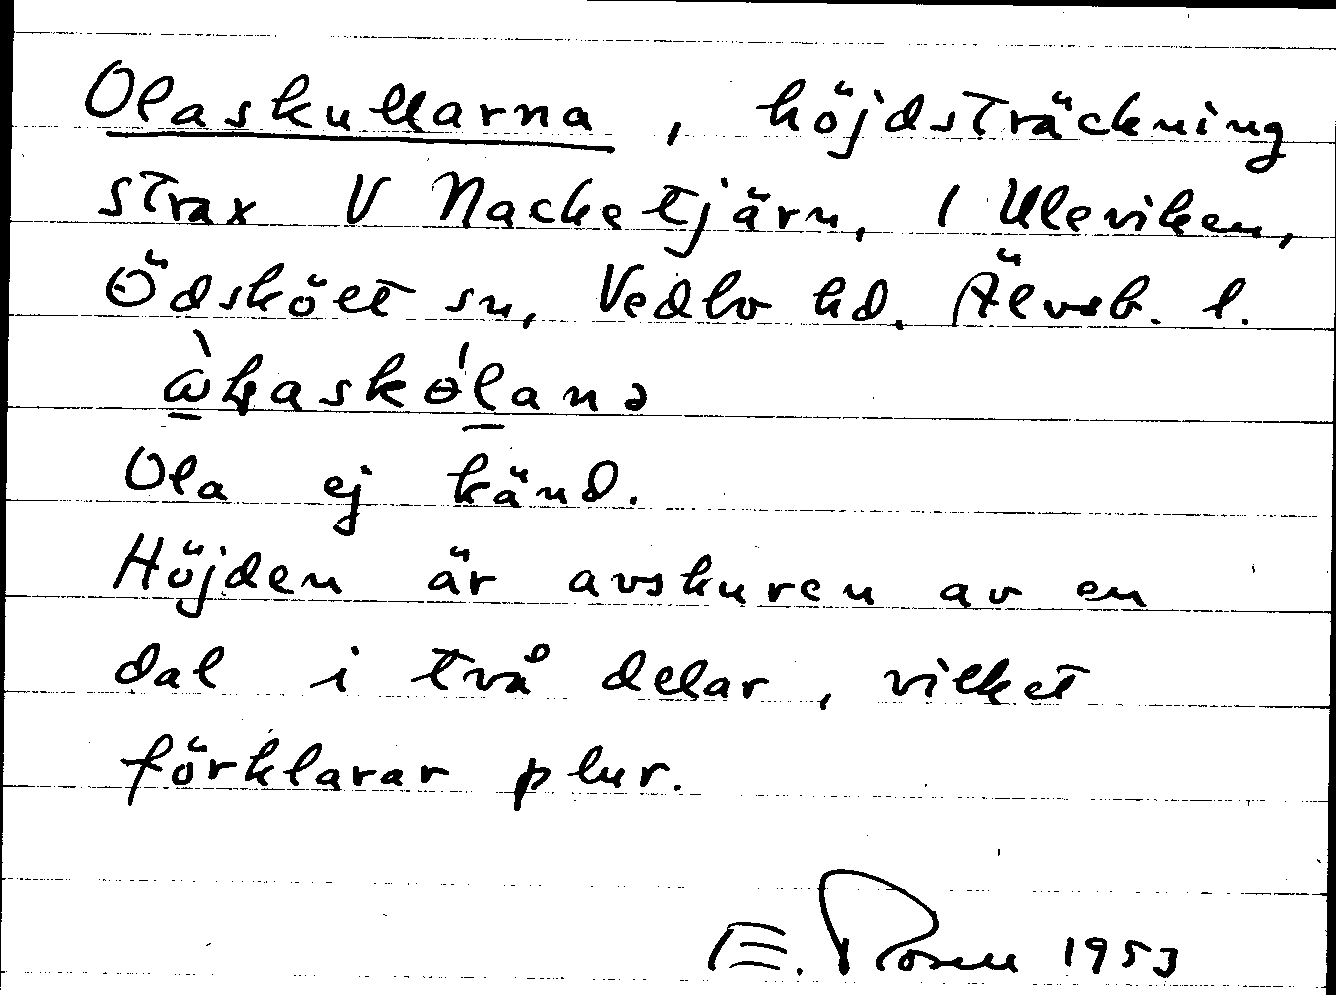 Olaskullarna, höjdsträckning
strax V Nacketjärn, 1 Uleviken,
Ödskölt sn, Vedbo hd. Älvsb. l.
Ola ej känd.
Höjden är avskuren av en
dal i två delar, vilket
förklarar plur.
E. Rosen 1953